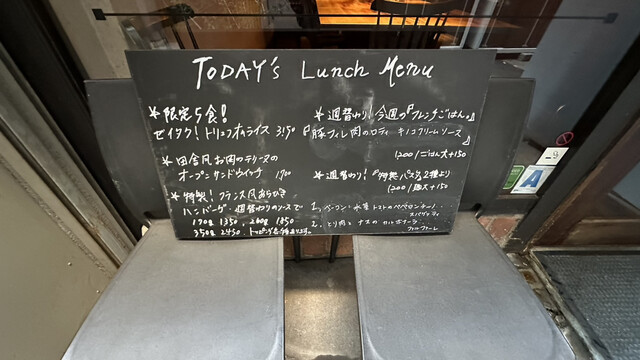 TODAY's Lunch Menu
* 限定5食!
ゼイタク! トリュフオムライス 3150
* 田舎風お肉のテリーヌの
オープンサンドウィッチ 1700
* 特製! フランス風あらびき
ハンバーグ 週替わりのソースで
170g 1350 260g 1850
350g 2450
* 週替わり! 今週の『フレンチごはん』
『豚フィレ肉のロティ キノコクリームソース』
1200/ごはん大+150
* 週替わり! 『特製パスタ』2種より
1200/麺大+150
1. ベーコン・水菜 トマトのペペロンチーノ
スパゲティ
2. とり肉と ナスの カルボナーラ
ファルファーレ